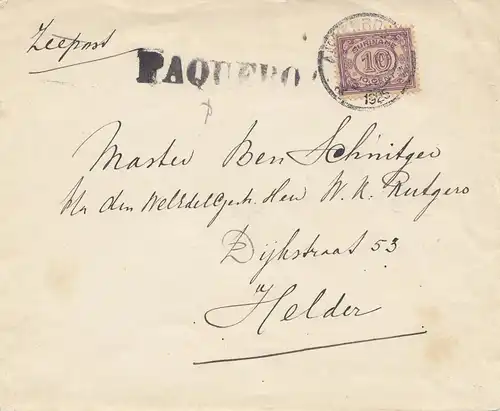 Zeepost
PAQUEBO
SURINAME
10
CENT
1926
Master Ben Schnitger
p/a den WelEdelGestr. Heer W. K. Rutgers
Dijkstraat 53
Helder